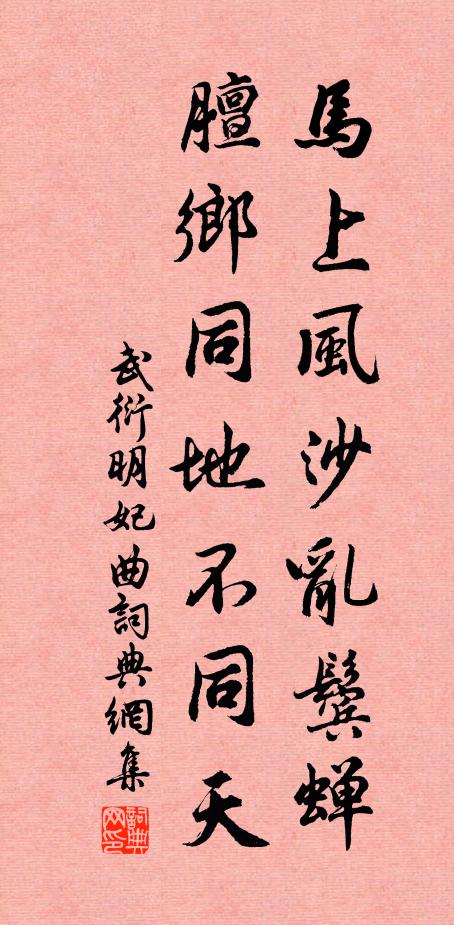 馬上風沙亂鬢蟬
膻鄉同地不同天
武衍明妃曲詞典網集
詞典网印